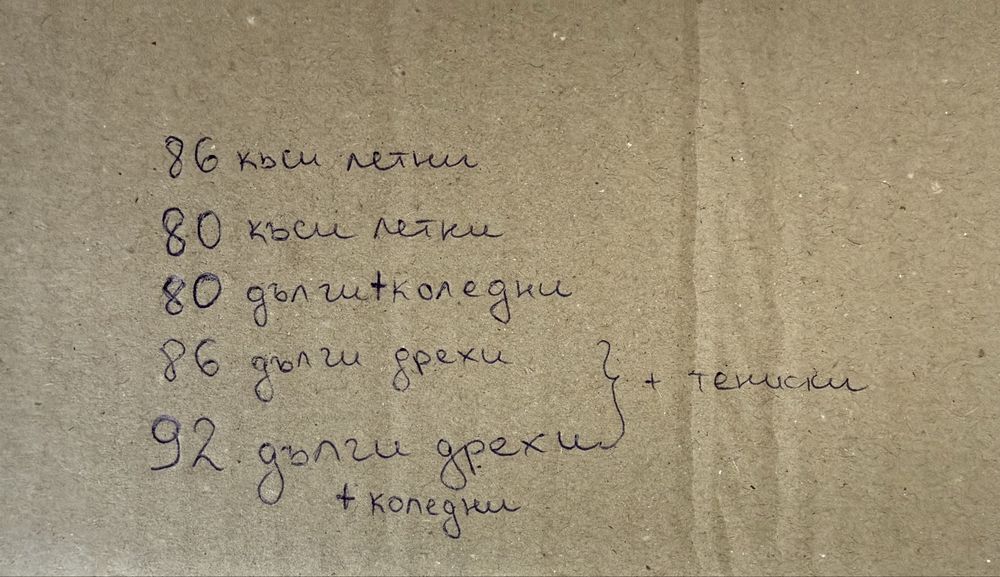 86 къси летни
80 къси летни
80 дълги+коледни
86 дълги дрехи
92 дълги дрехи } + тениски
+ коледни